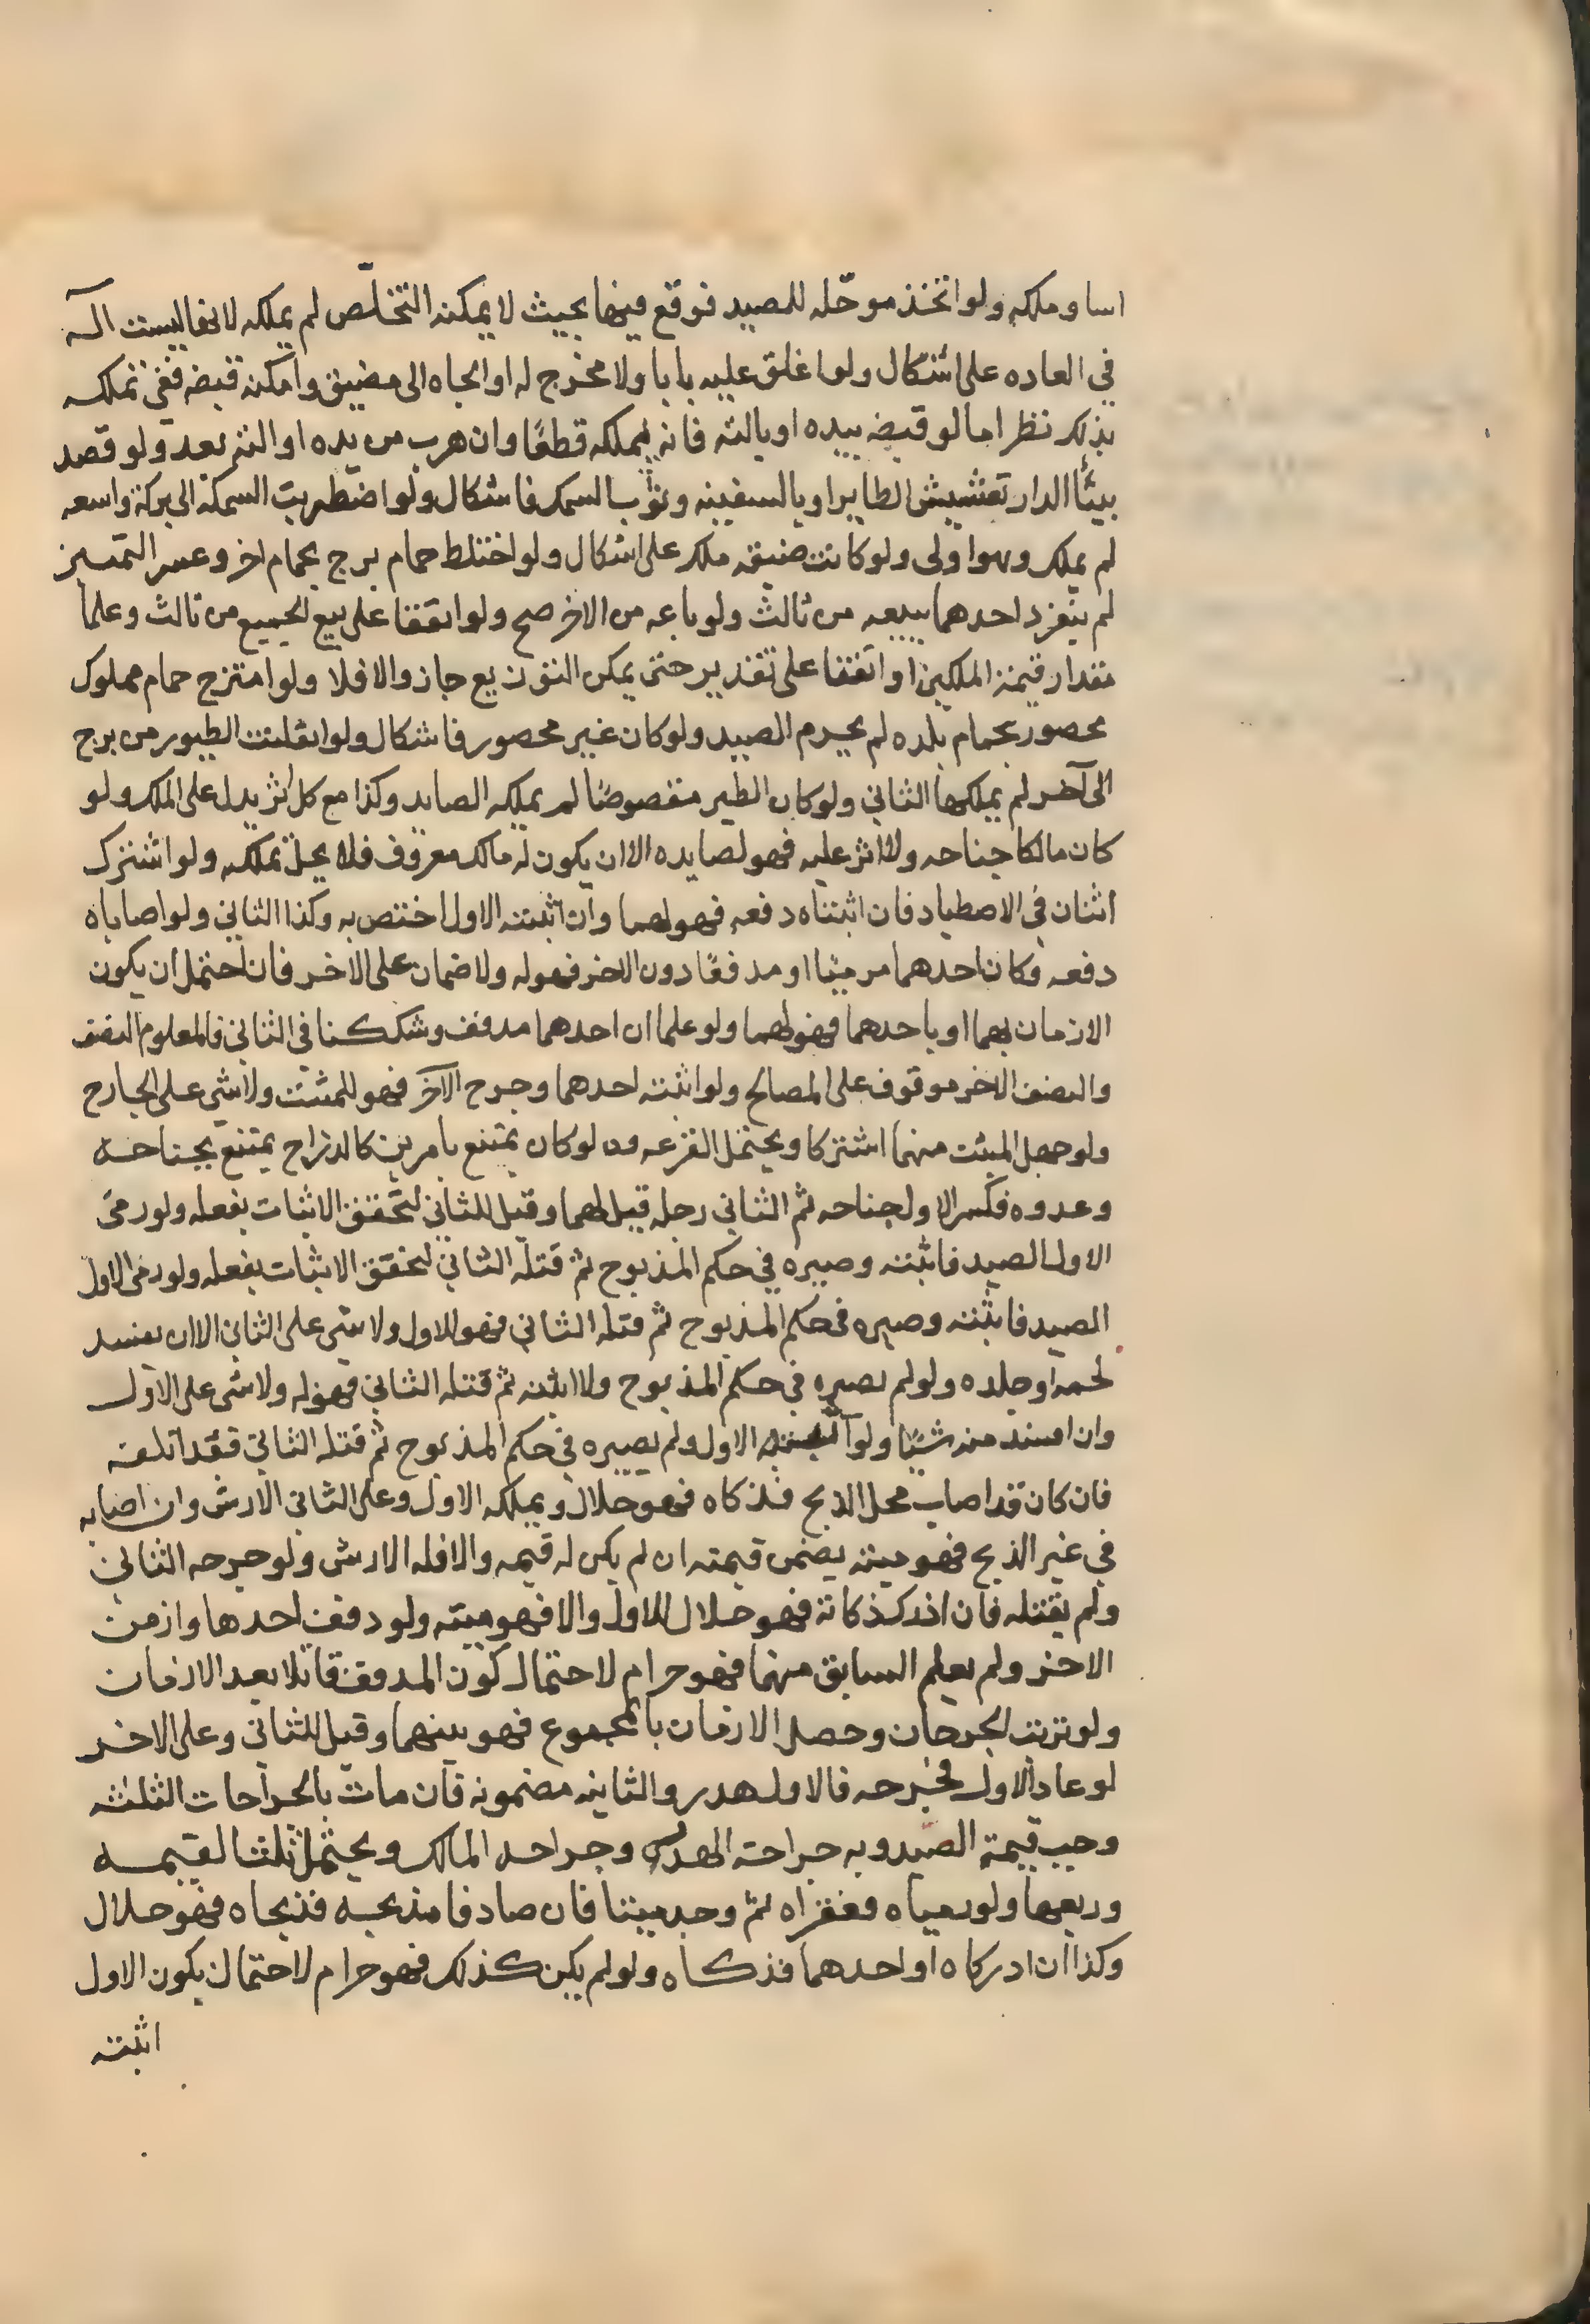 اسا وملكه ولو اتخذ موحله للصيد فوقع فيها بحيث لا يمكنه التخلّص لم يملكه لانها ليست اله
في العاده على اشكال ولو اغلق عليه بابا ولا مخرج له او الجاه الى مضيق وامكنه قبضه ففي تملكه
بذلك نظر اما لو قبضه بيده او بالته فانه يملكه قطعًا وان هرب من يده او الته بعد ولو قصد
ببناً الدار تعشيش الطاير او بالسفينه وثوب السمك فاشكال ولو اضطربت السمكة الى بركة واسعه
لم يملك وهو اولى ولو كانت ضيقه ملك على اشكال ولو اختلط حمام برج بحمام اخر وعسر التمييز
لم ينفرد احدهما ببيعه من ثالث ولو باعه من الاخر صح ولو اتفقا على بيع الجميع من ثالث وعلما
مقدار قيمة الملكين او اتفقا على تقدير حتى يمكن التوزيع جاز والا فلا ولو امتزج حمام مملوك
محصور بحمام بلده لم يحرم الصيد ولو كان غير محصور فاشكال ولو انقلبت الطيور من برج
الى آخر لم يملكها الثاني ولو كان الطير مقصوصًا لم يملكه الصايد وكذا مع كل اثر يدل على الملك ولو
كان مالكا جناحه ولا اثر عليه فهو لصايده الا ان يكون له مالك معروف فلا يحل تملكه ولو اشترك
اثنان في الاصطياد فان اثبتاه دفعه فهو لهما وان اثبته الاول اختص به وكذا الثاني ولو اصاباه
دفعه وكان احدهما مزمنا او مدففًا دون الاخر فهو له ولا ضمان على الاخر فان احتمل ان يكون
الازمان بهما او باحدهما فهو لهما ولو علما ان احدهما مدفف وشككنا في الثاني فالمعلوم النصف
والنصف الاخر موقوف على المصالح ولو اثبته احدهما وجرح الآخر فهو للمثبت ولا شى على الجارح
ولو جهل المبثت منهما اشتركا ويحتمل القرعه ولو كان يمتنع بامرين كالدراج يمتنع بجناحه
وعدوه فكسر الاول جناحه ثم الثاني رجله قيل لهما وقيل للثاني لتحقق الاثبات بفعله ولو رمى
الاول الصيد فاثبته وصيره في حكم المذبوح ثم قتله الثاني لتحقق الاثبات بفعله ولو رمى الاول
الصيد فاثبته وصيره في حكم المذبوح ثم قتله الثاني فهو للاول ولا شى على الثاني الا ان يفسد
لحمه او جلده ولو لم يصيره في حكم المذبوح ولا اثبته ثم قتله الثاني فهو له ولا شى على الاول
وان افسد منه شيئا ولو اثبته الاول ولم يصيره في حكم المذبوح ثم قتله الثاني فقد اتلفه
فان كان قد اصاب محل الذبح فذكاه فهو حلال ويملكه الاول وعلى الثاني الارش وان اصابه
في غير الذبح فهو ميته يضمن قيمته ان لم يكن له قيمه والا فله الارش ولو جرحه الثاني
ولم يقتله فان ادرك ذكاته فهو حلال للاول والا فهو ميته ولو دفف احدها وازمن
الاخر ولم يعلم السابق منهما فهو حرام لاحتمال كون المدفف قاتلا بعد الازمان
ولو ترتب الجرحان وحصل الازمان بالمجموع فهو بينهما وقيل للثاني وعلى الاخر
لو عاد الاول فجرحه فالاول هدر والثانيه مضمونه فان مات بالجراحات الثلثه
وجب قيمة الصيد وبه جراحة الهدر وجراحه المالك ويحتمل ثلثا القيمه
وربعها ولو رمياه فعقراه ثم وجد ميتا فان صادفا مذبحه فذبحاه فهو حلال
وكذا ان ادركاه او احدهما فذكاه ولو لم يكن كذلك فهو حرام لاحتمال يكون الاول
اثبته